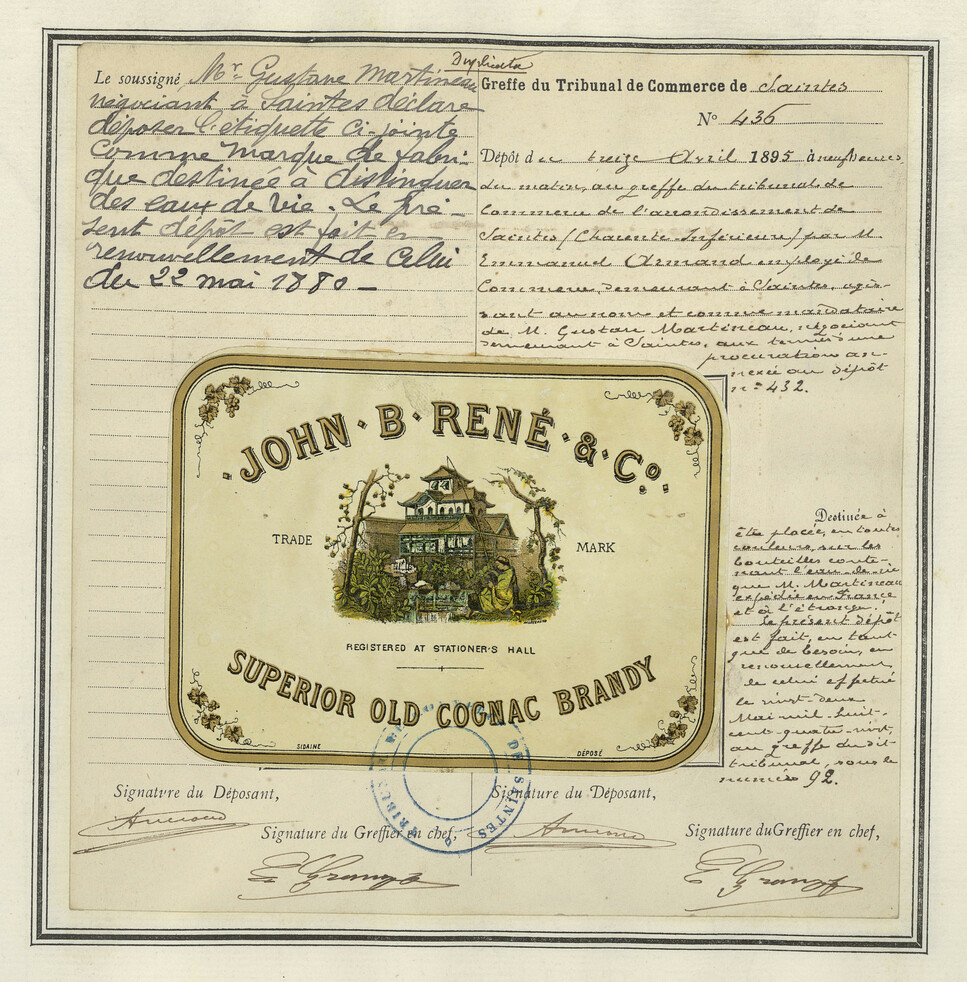 Duplicata
Le soussigné Mr Gustave Martineau
négociant à Saintes déclare
déposer l'étiquette ci-jointe
comme marque de fabri-
que destinée à distinguer
des eaux de vie. Le pré-
sent dépôt est fait en
renouvellement de celui
du 22 mai 1880 –
Greffe du Tribunal de Commerce de Saintes
N° 436
Dépôt du treize Avril 1895 à neuf heures
du matin, au greffe du tribunal de
Commerce de l'arrondissement de
Saintes (Charente Inférieure) par M.
Emmanuel Armand employé de
Commerce, demeurant à Saintes, agis-
sant au nom et comme mandataire
de M. Gustave Martineau, négociant
demeurant à Saintes, aux termes d'une
procuration an-
nexée au dépôt
n° 432.
JOHN · B · RENÉ · & · Co.
TRADE MARK
REGISTERED AT STATIONER'S HALL
SUPERIOR OLD COGNAC BRANDY
SIDAINE
DÉPOSÉ
Destinée à
être placée, en toutes
couleurs, sur les
bouteilles conte-
nant l'eau-de-vie
que M. Martineau
expédie en France
et à l'étranger.
Le présent dépôt
est fait, en tant
que de besoin, en
renouvellement
de celui effectué
le vingt-deux
Mai mil-huit-
cent-quatre-vingt,
au greffe du dit
tribunal, sous le
numéro 92.
DE SAINTES
Signature du Déposant,
Armand
Signature du Greffier en chef,
Signature du Déposant,
Armand
Signature du Greffier en chef,